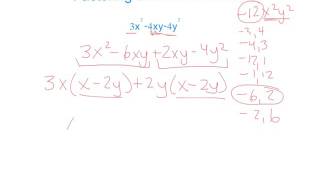 3x²-4xy-4y²
3x²-6xy+2xy-4y²
3x(x-2y)+2y(x-2y)
-12x²y²
-3,4
-4,3
-12,1
-1,12
-6,2
-2,6